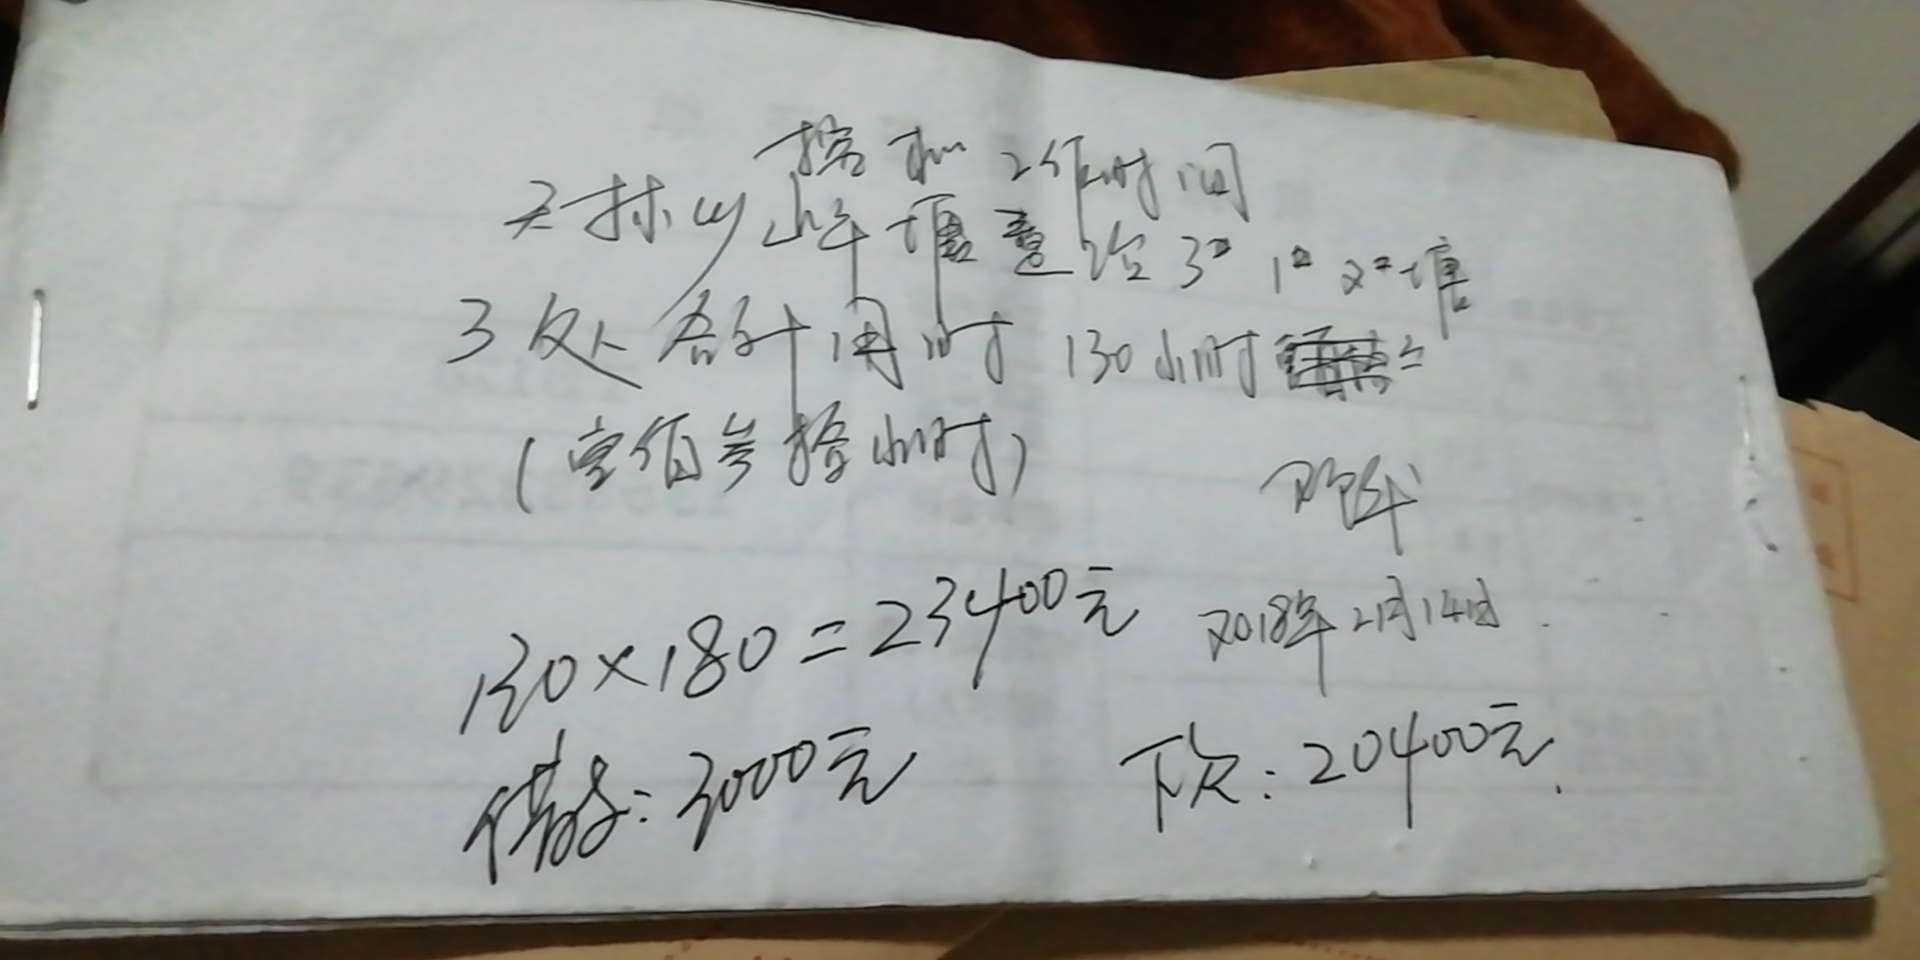 挖机工作时间
天林山山羊塘 3# 1# 2#塘
3处合计用时130小时
(壹佰叁拾小时)
2018年2月14日
130×180=23400元
借支:3000元
下欠:20400元.